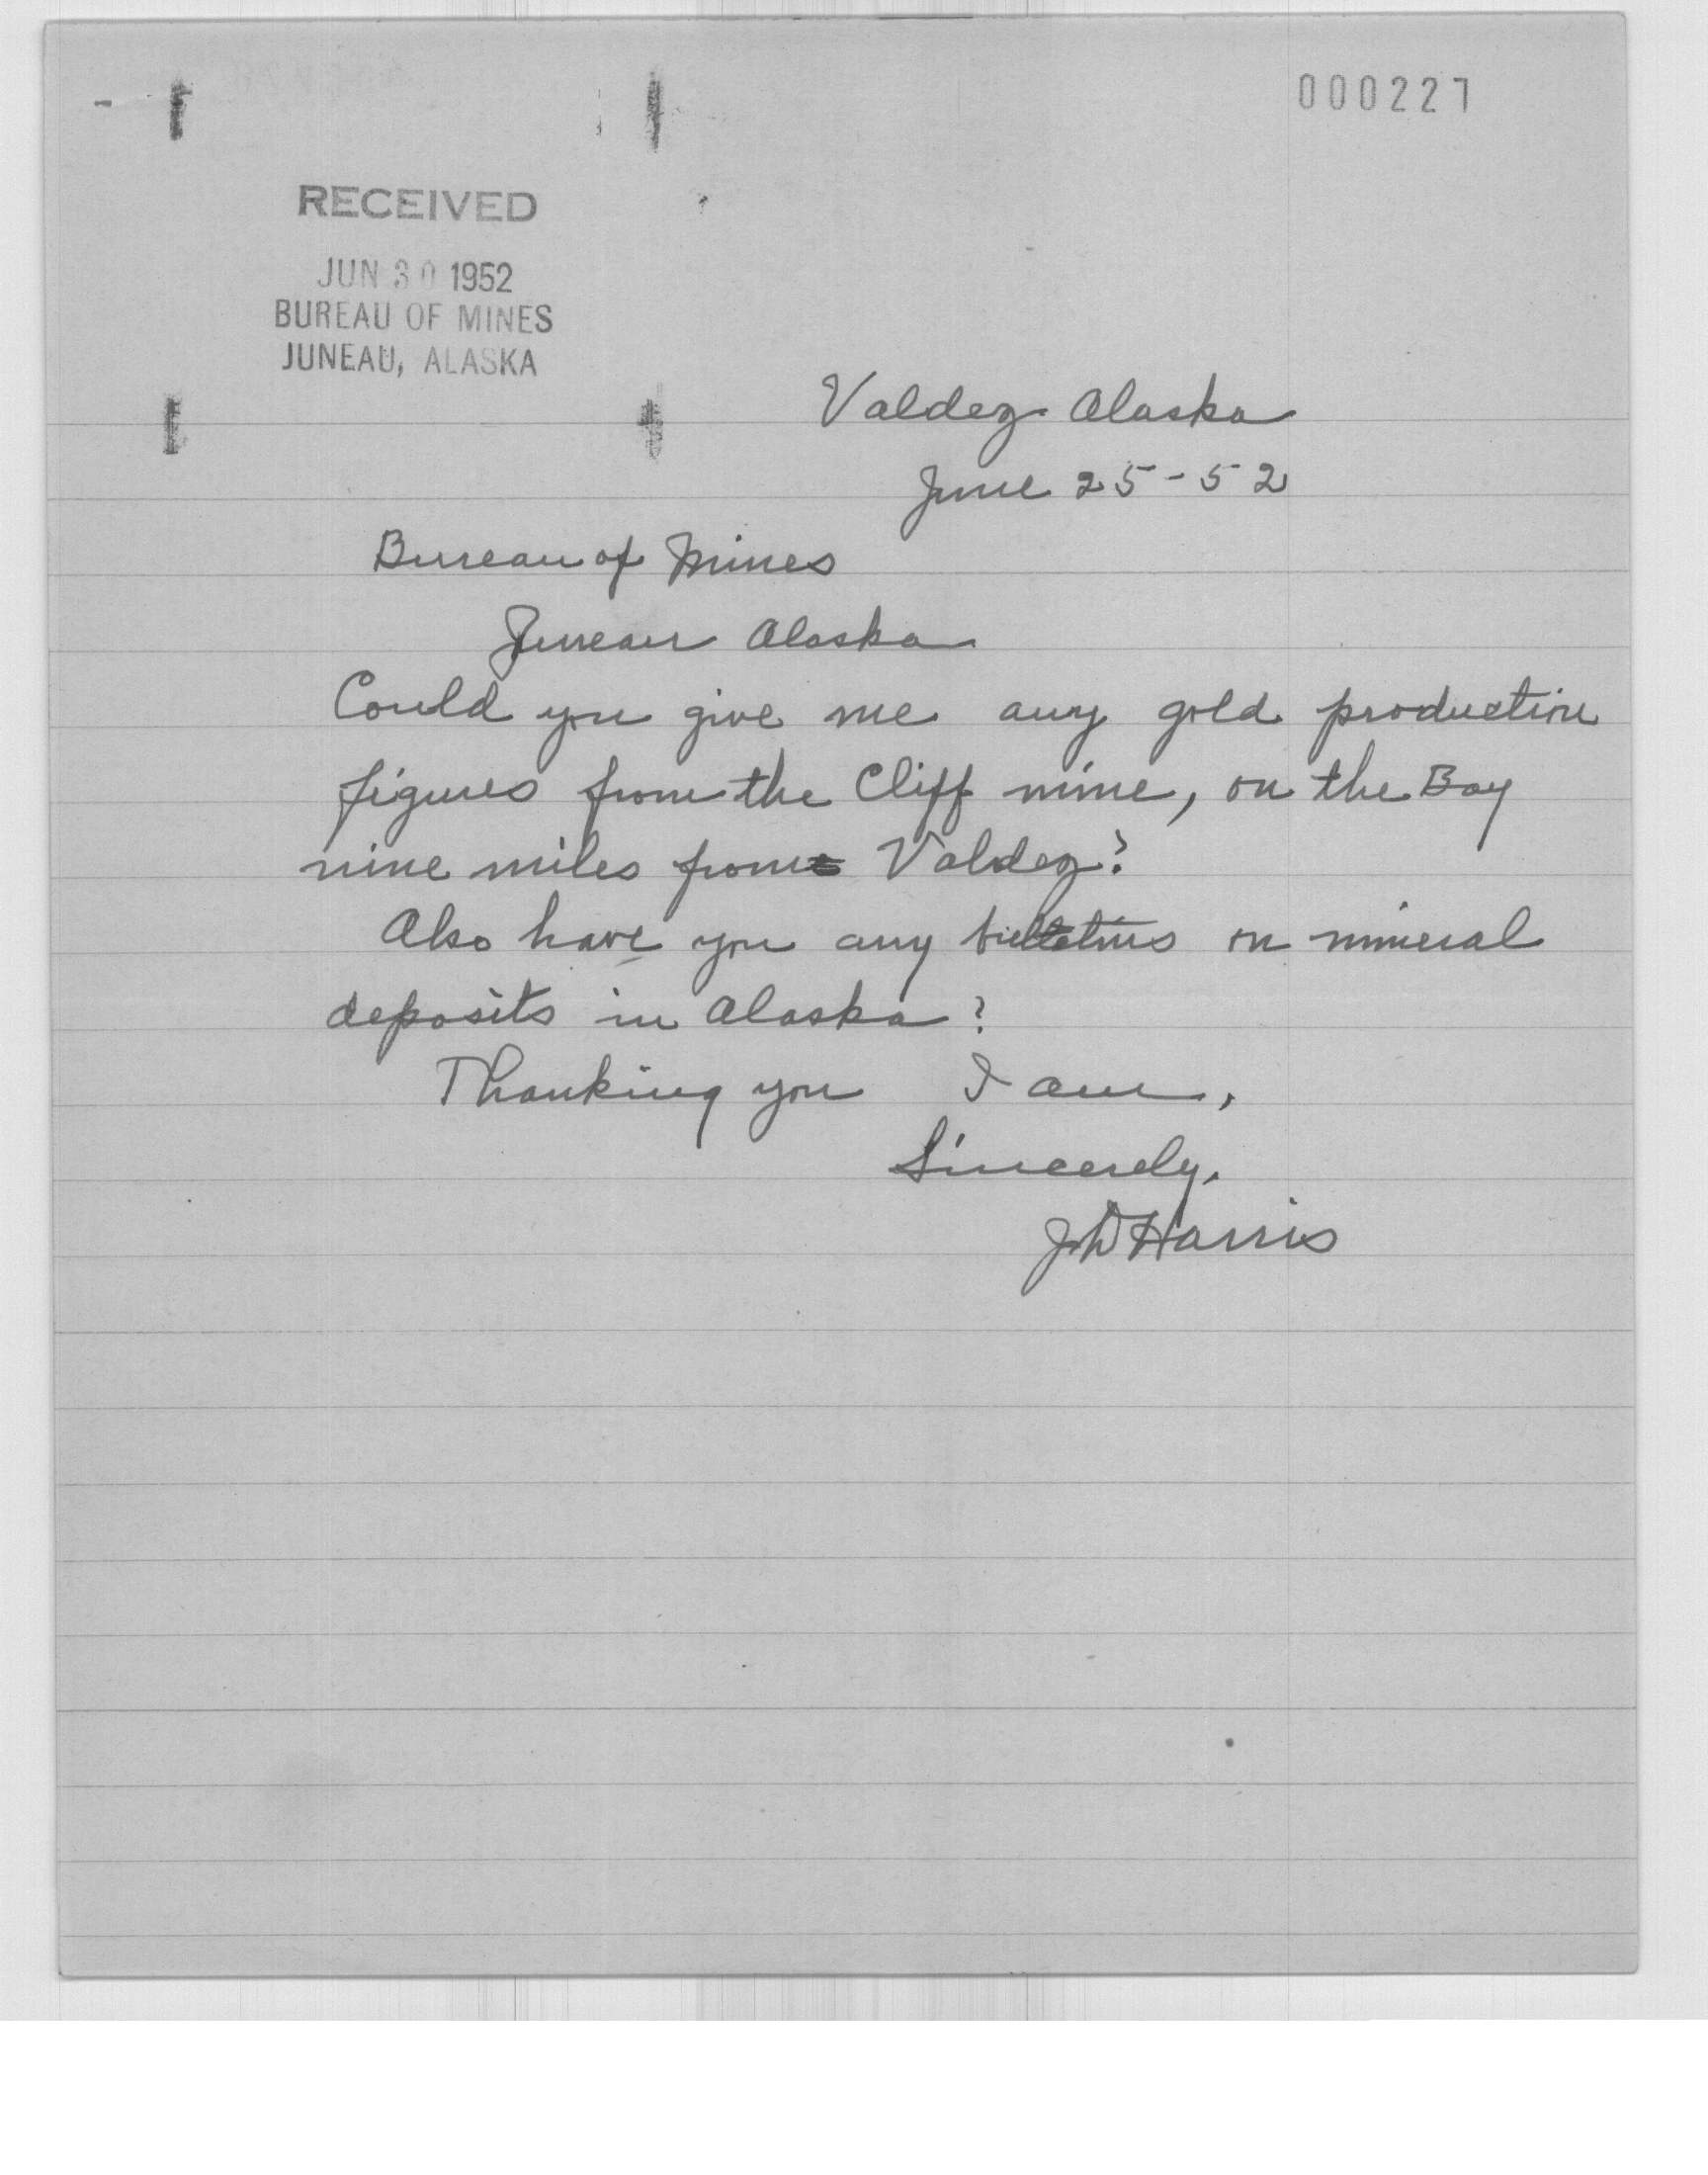 000227
RECEIVED
JUN 30 1952
BUREAU OF MINES
JUNEAU, ALASKA
Valdez Alaska
June 25-52
Bureau of Mines
Juneau Alaska
Could you give me any gold production
figures from the Cliff mine, on the Bay
nine miles from Valdez?
Also have you any bulletins on mineral
deposits in Alaska?
Thanking you I am,
Sincerely,
JD Harris